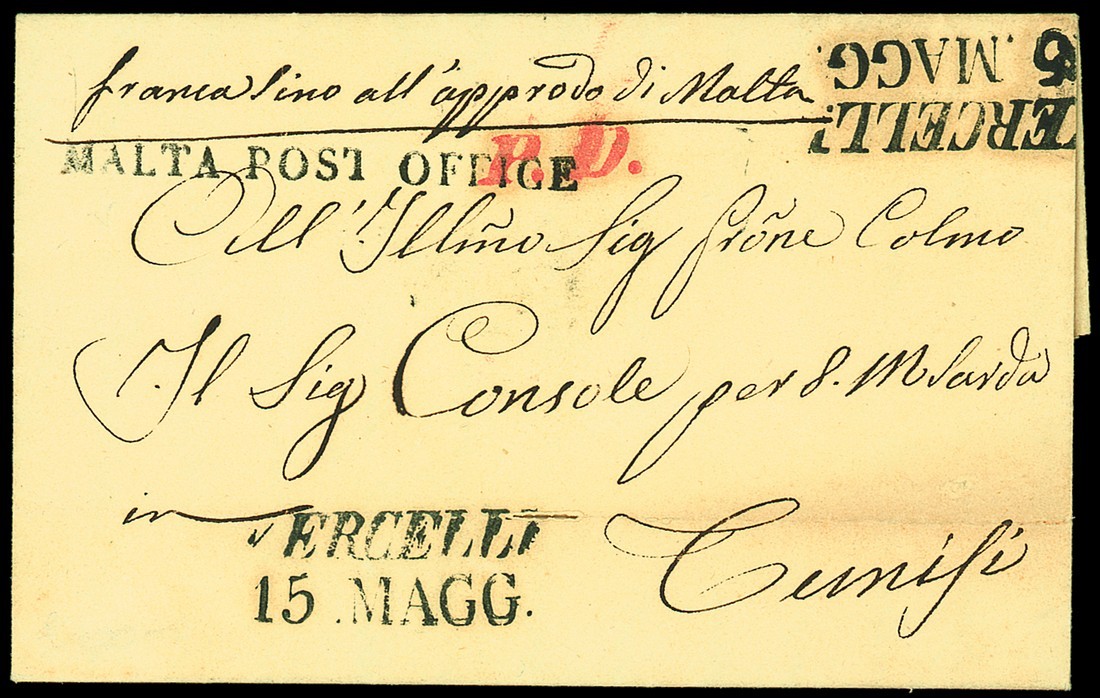 franca sino all'approdo di Malta
5 .MAGG.
ERCELLI
MALTA POST OFFICE
P.D.
All' Illm̃o Sig Sig Prõne Colmo
Il Sig Console per S. M Sarda
in Tunisi
VERCELLI
15 .MAGG.